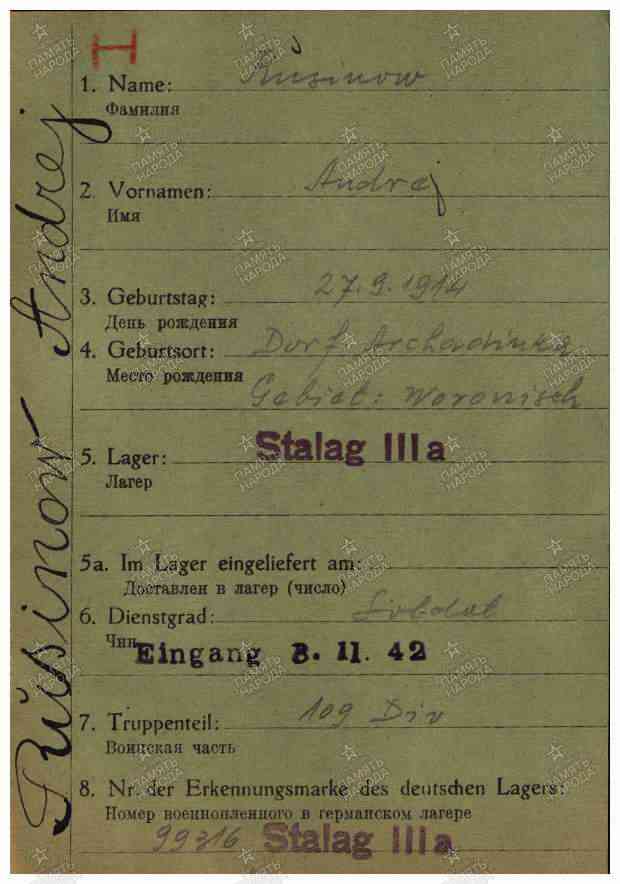 I
1. Name: Rusinow
Фамилия
2. Vornamen: Andrej
Имя
3. Geburtstag: 27.9.1914
День рождения
4. Geburtsort: Dorf Archadinka
Место рождения
Gebiet: Woronisch
5. Lager: Stalag IIIa
Лагер
5a. Im Lager eingeliefert am:
Доставлен в лагер (число)
6. Dienstgrad: Soldat
Чин
Eingang 3. 11. 42
7. Truppenteil: 109 Div
Воинская часть
8. Nr. der Erkennungsmarke des deutschen Lagers:
Номер военнопленного в германском лагере
99316 Stalag IIIa
Rusinow Andrej
ПАМЯТЬ НАРОДА